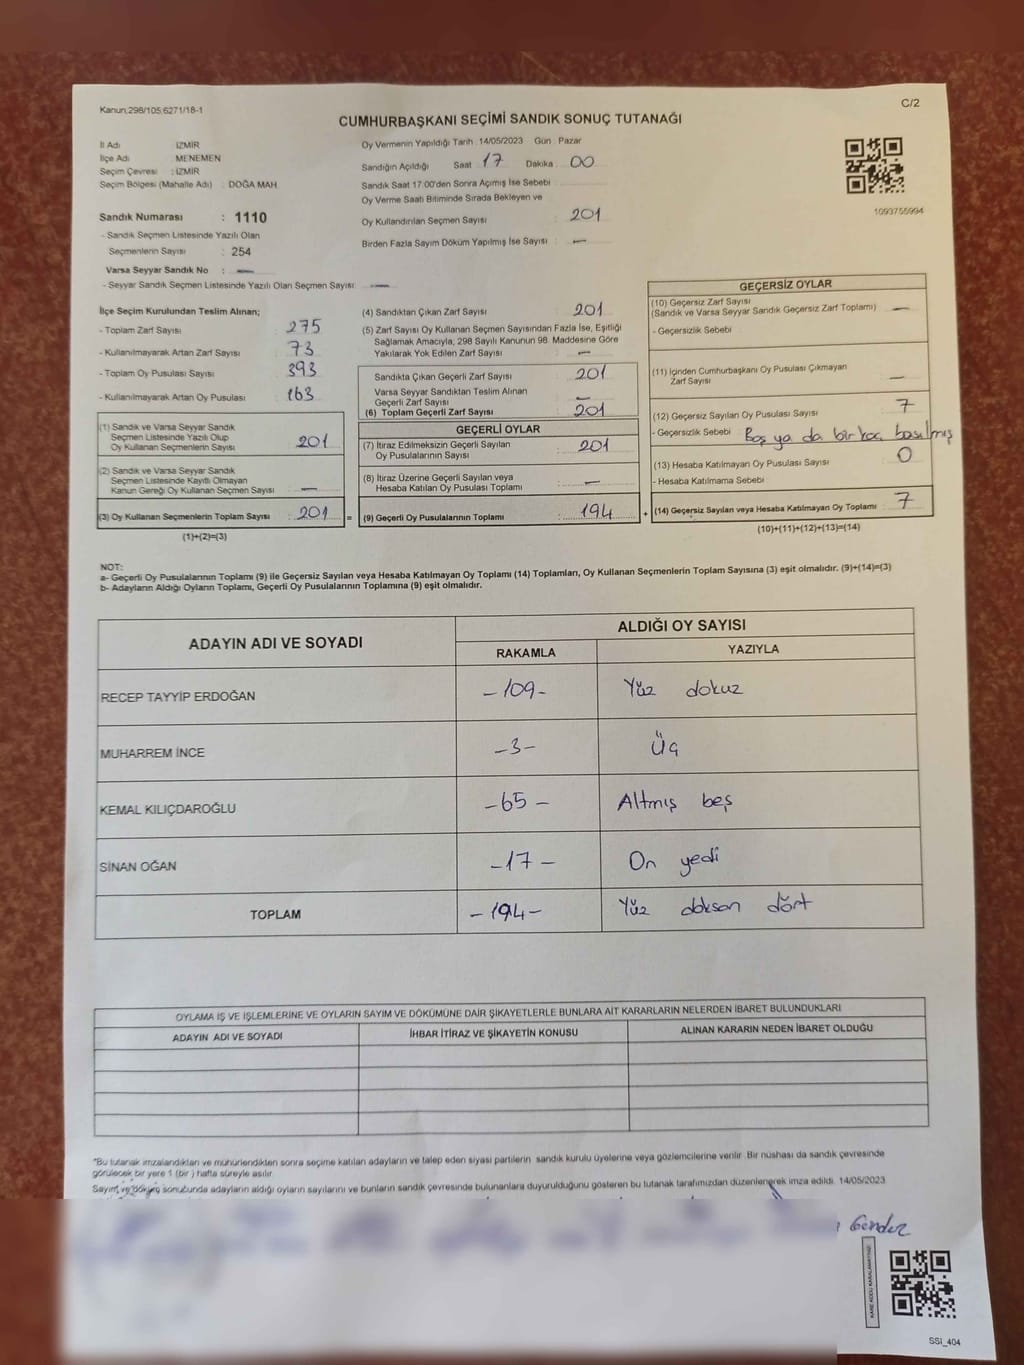 Kanun;298/105;6271/18-1
C/2
CUMHURBAŞKANI SEÇİMİ SANDIK SONUÇ TUTANAĞI
İl Adı İZMİR
İlçe Adı MENEMEN
Seçim Çevresi : İZMİR
Seçim Bölgesi (Mahalle Adı) : DOĞA MAH.
Sandık Numarası : 1110
- Sandık Seçmen Listesinde Yazılı Olan
Seçmenlerin Sayısı : 254
Varsa Seyyar Sandık No : —
- Seyyar Sandık Seçmen Listesinde Yazılı Olan Seçmen Sayısı : —
Oy Vermenin Yapıldığı Tarih : 14/05/2023 Gün : Pazar
Sandığın Açıldığı Saat 17 Dakika 00
Sandık Saat 17.00'den Sonra Açılmış İse Sebebi
Oy Verme Saati Bitiminde Sırada Bekleyen ve
Oy Kullandırılan Seçmen Sayısı : 201
Birden Fazla Sayım Döküm Yapılmış İse Sayısı : —
1093755994
İlçe Seçim Kurulundan Teslim Alınan;
- Toplam Zarf Sayısı : 275
- Kullanılmayarak Artan Zarf Sayısı : 73
- Toplam Oy Pusulası Sayısı : 393
- Kullanılmayarak Artan Oy Pusulası : 163
(1) Sandık ve Varsa Seyyar Sandık
Seçmen Listesinde Yazılı Olup
Oy Kullanan Seçmenlerin Sayısı : 201
(2) Sandık ve Varsa Seyyar Sandık
Seçmen Listesinde Kayıtlı Olmayan
Kanun Gereği Oy Kullanan Seçmen Sayısı : —
(3) Oy Kullanan Seçmenlerin Toplam Sayısı : 201 =
(1)+(2)=(3)
(4) Sandıktan Çıkan Zarf Sayısı : 201
(5) Zarf Sayısı Oy Kullanan Seçmen Sayısından Fazla İse, Eşitliği
Sağlamak Amacıyla, 298 Sayılı Kanunun 98. Maddesine Göre
Yakılarak Yok Edilen Zarf Sayısı : —
Sandıkta Çıkan Geçerli Zarf Sayısı : 201
Varsa Seyyar Sandıktan Teslim Alınan
Geçerli Zarf Sayısı : —
(6) Toplam Geçerli Zarf Sayısı : 201
GEÇERLİ OYLAR
(7) İtiraz Edilmeksizin Geçerli Sayılan
Oy Pusulalarının Sayısı : 201
(8) İtiraz Üzerine Geçerli Sayılan veya
Hesaba Katılan Oy Pusulası Toplamı : —
(9) Geçerli Oy Pusulalarının Toplamı : 194 +
GEÇERSİZ OYLAR
(10) Geçersiz Zarf Sayısı
(Sandık ve Varsa Seyyar Sandık Geçersiz Zarf Toplamı) : —
- Geçersizlik Sebebi
(11) İçinden Cumhurbaşkanı Oy Pusulası Çıkmayan
Zarf Sayısı —
(12) Geçersiz Sayılan Oy Pusulası Sayısı 7
- Geçersizlik Sebebi : Boş ya da birkaç basılmış
(13) Hesaba Katılmayan Oy Pusulası Sayısı 0
- Hesaba Katılmama Sebebi
(14) Geçersiz Sayılan veya Hesaba Katılmayan Oy Toplamı : 7
(10)+(11)+(12)+(13)=(14)
NOT:
a- Geçerli Oy Pusulalarının Toplamı (9) ile Geçersiz Sayılan veya Hesaba Katılmayan Oy Toplamı (14) Toplamları, Oy Kullanan Seçmenlerin Toplam Sayısına (3) eşit olmalıdır. (9)+(14)=(3)
b- Adayların Aldığı Oyların Toplamı, Geçerli Oy Pusulalarının Toplamına (9) eşit olmalıdır.
ADAYIN ADI VE SOYADI
ALDIĞI OY SAYISI
RAKAMLA YAZIYLA
RECEP TAYYİP ERDOĞAN -109- Yüz dokuz
MUHARREM İNCE -3- Üç
KEMAL KILIÇDAROĞLU -65- Altmış beş
SİNAN OĞAN -17- On yedi
TOPLAM -194- Yüz doksan dört
OYLAMA İŞ VE İŞLEMLERİNE VE OYLARIN SAYIM VE DÖKÜMÜNE DAİR ŞİKAYETLERLE BUNLARA AİT KARARLARIN NELERDEN İBARET BULUNDUKLARI
ADAYIN ADI VE SOYADI İHBAR İTİRAZ VE ŞİKAYETİN KONUSU ALINAN KARARIN NEDEN İBARET OLDUĞU
*Bu tutanak imzalandıktan ve mühürlendikten sonra seçime katılan adayların ve talep eden siyasi partilerin sandık kurulu üyelerine veya gözlemcilerine verilir. Bir nüshası da sandık çevresinde
görülecek bir yere 1 (bir) hafta süreyle asılır.
Sayım ve döküm sonubunda adayların aldığı oyların sayılarını ve bunların sandık çevresinde bulunanlara duyurulduğunu gösteren bu tutanak tarafımızdan düzenlenerek imza edildi. 14/05/2023
SSI_404